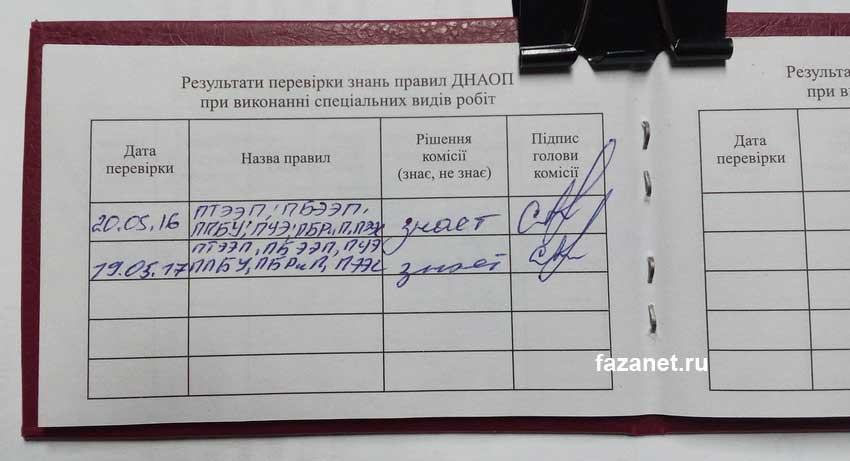 Результати перевірки знань правил ДНАОП
при виконанні спеціальних видів робіт
Дата
перевірки
Назва правил
Рішення
комісії
(знає, не знає)
Підпис
голови
комісії
20.05.16
ПТЭЭП; ПБЭЭП,
ППБУ; ПУЭ; ПБРиП,
знает
19.05.17
ПТЭЭП, ПБЭЭП, ПУЭ
ППБУ, ПБРиП, ПТЭС
знает
Результа
при ви
Дата
перевірки
fazanet.ru